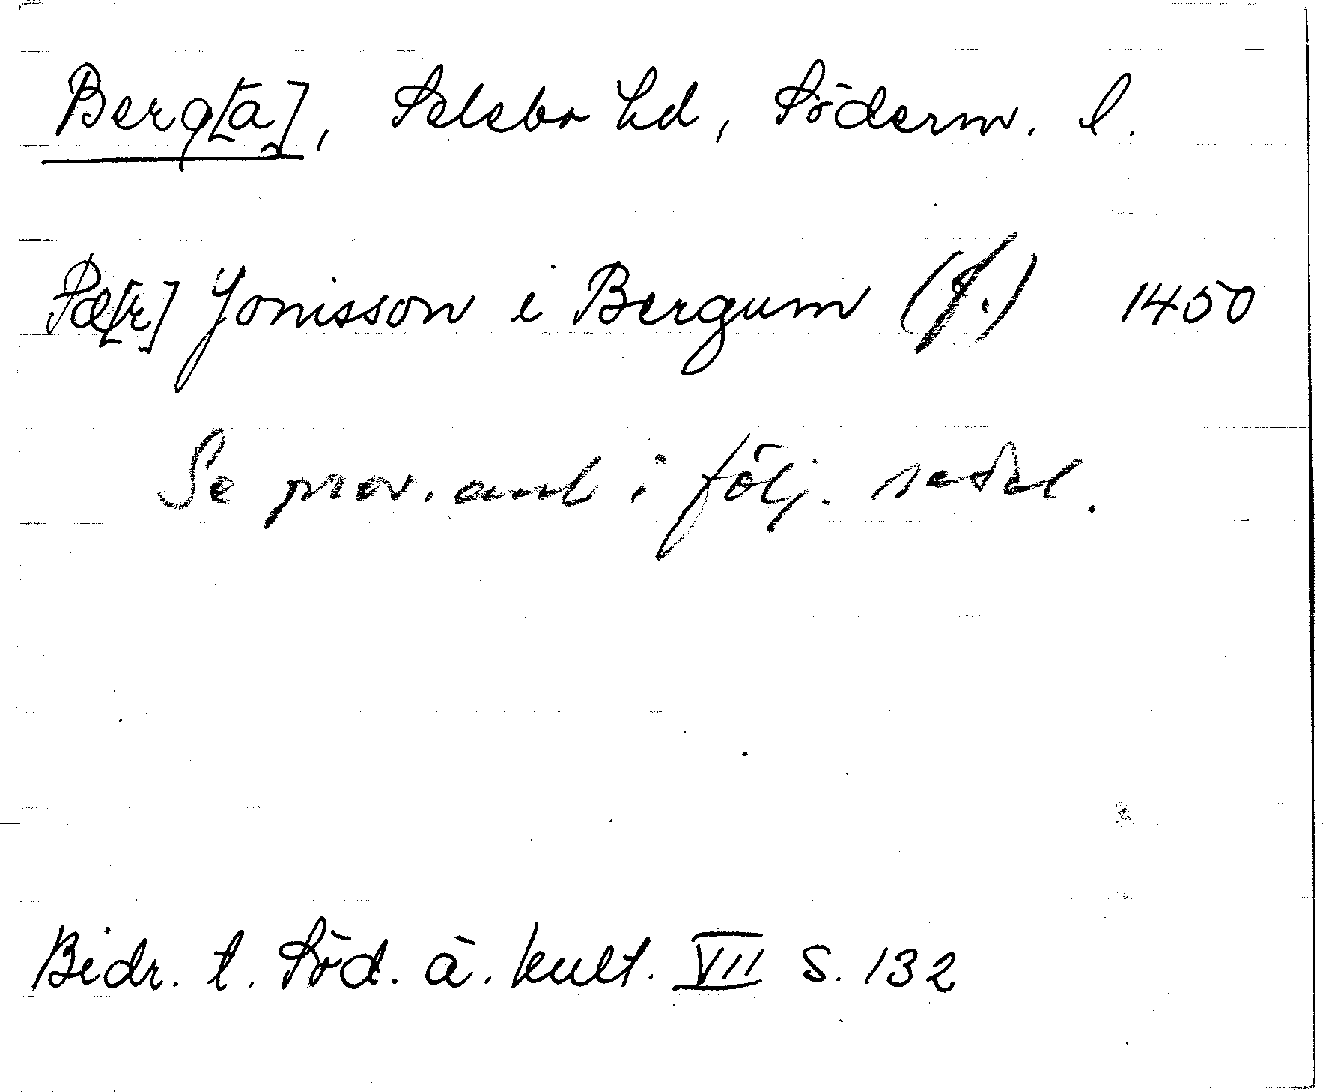 Berg[a], Selebo hd, Söderm. l.
Pæ[r] Jonisson i Bergum (f.) 1450
Se prov. anl i följ. sedel.
Bidr. t. Söd. ä. kult. VII S. 132